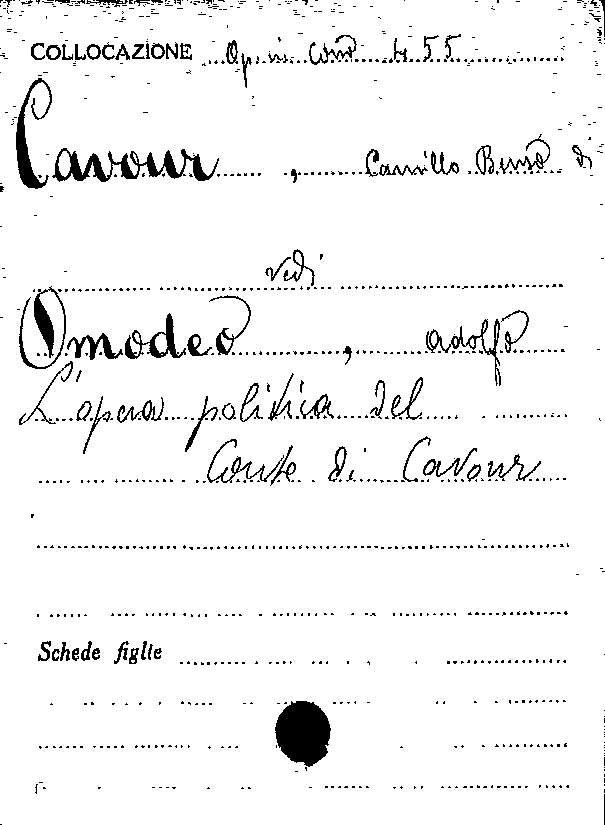 COLLOCAZIONE Op. in cont. 455
Cavour, Camillo Benso di
vedi
Omodeo, Adolfo
L'opera politica del
Conte di Cavour
Schede figlie